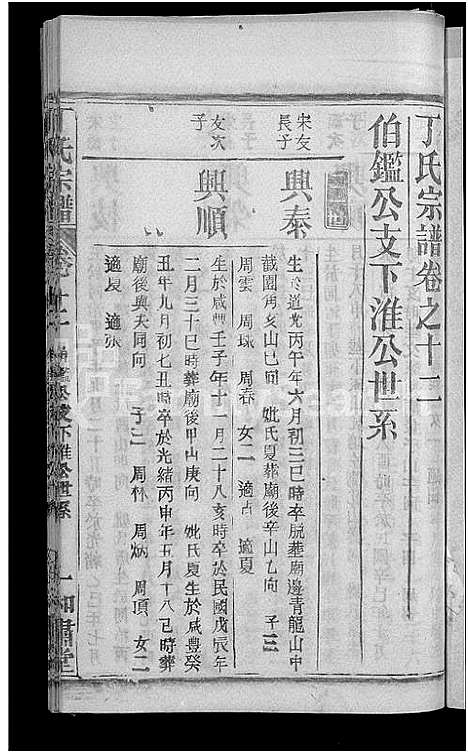 丁氏宗譜卷之十二
伯鑑公支下淮公世系
宋友長子
興奏
生於道光丙午年六月初三巳時卒脫葬廟邊青龍山中
截園角亥山巳向 妣氏夏葬廟後辛山乙向 子三
周雲 周球 周春 女二 適占 適夏
友次子
興順
生於咸豐壬子年十一月二十八亥時卒於民國戊辰年
二月三十巳時葬廟後甲山庚向 妣氏夏生於咸豐癸
丑年九月初七丑時卒於光緒丙申年五月十八巳時葬
廟後與夫同向 子三 周林 周炳 周頂 女二
適晟 適張
丁氏宗譜
卷十二
鑑公支下淮公世系